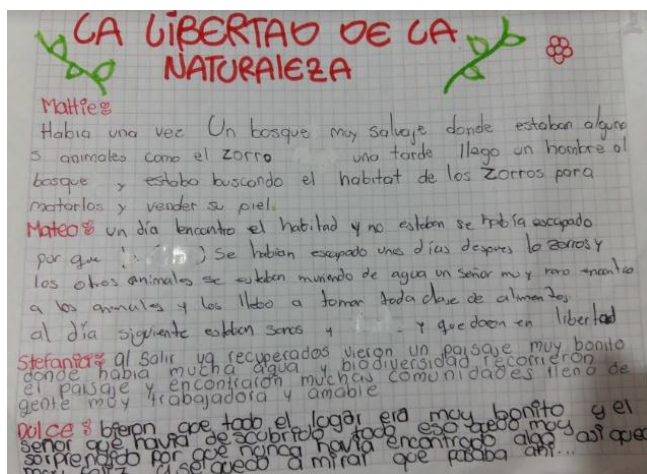 LA LIBERTAD DE LA
NATURALEZA
Mattie:
Habia una vez Un bosque muy salvaje donde estaban alguno
s animales como el zorro una tarde llego un hombre al
bosque y estaba buscando el habitat de los zorros para
matarlos y vender su piel.
Mateo: un día encontro el habitad y no estaban se había escapado
por que ( ) se habian escapado unos días despues lo zorros y
los otros animales se estaban muriendo de agua un señor muy raro encontro
a los animales y los llebo a tomar toda clase de alimentos
al día siguiente estaban sanos y y quedaon en libertad
Stefania: al salir ya recuperados vieron un paisaje muy bonito
donde habia mucha agua y biodiversidad recorrieron
el paisaje y encontraron muchas comunidades lleno de
gente muy trabajadora y amable
Dulce: bieron que todo el lugar era muy bonito y el
señor que havia descubrido todo eso quedo muy
sorprendido por que nunca havia encontrado algo asi que
a mirar que pasaba ahi...